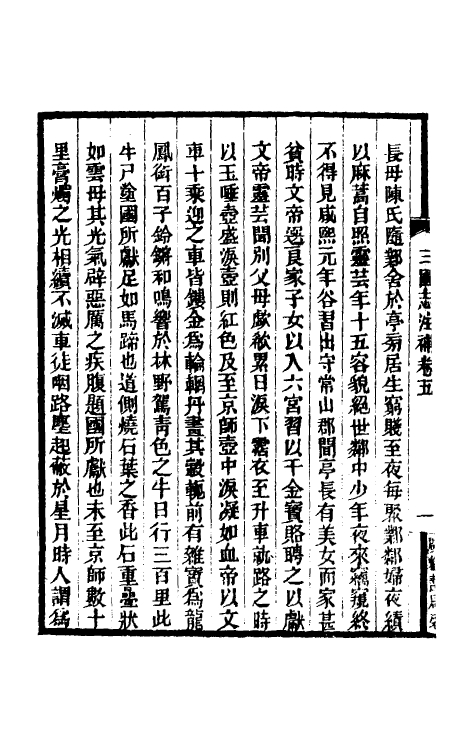 長母陳氏隨鄰舍於亭旁居生窮賤至夜每聚鄰鄰婦夜績
以麻蒿自照靈芸年十五容貌絕世鄰中少年夜來竊窺終
不得見咸熙元年谷習出守常山郡聞亭長有美女而家甚
貧時文帝選良家子女以入六宮習以千金寶賂聘之以獻
文帝靈芸聞別父母歔欷累日淚下霑衣至升車就路之時
以玉唾壺盛淚壺則紅色及至京師壺中淚凝如血帝以文
車十乘迎之車皆鏤金爲輪輞丹畫其轂軛前有雜寶爲龍
鳳銜百子鈴鏘和鳴響於林野駕靑色之牛日行三百里此
牛尸塗國所獻足如馬蹄也道側燒石葉之香此石重疊狀
如雲母其光氣辟惡厲之疾腹題國所獻也未至京師數十
里膏燭之光相續不滅車徒咽路塵起蔽於星月時人謂爲
三國志注補卷五
一